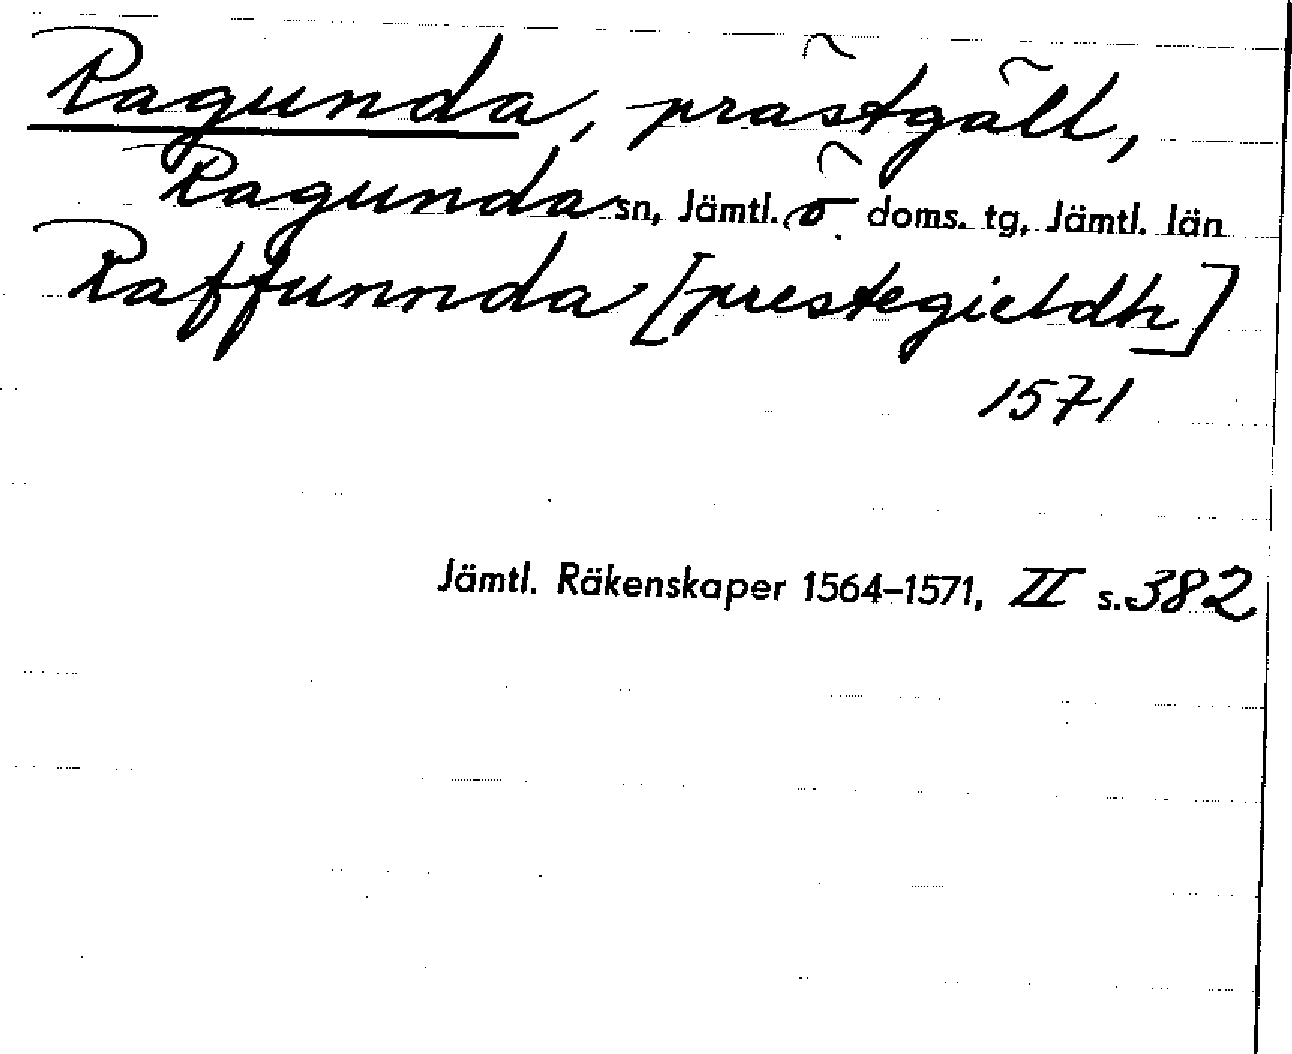 Ragunda, prästgäll,
Ragunda sn, Jämtl. ö. doms. tg, Jämtl. län
Raffunnda [prestegieldh]
1571
Jämtl. Räkenskaper 1564–1571, II s. 382